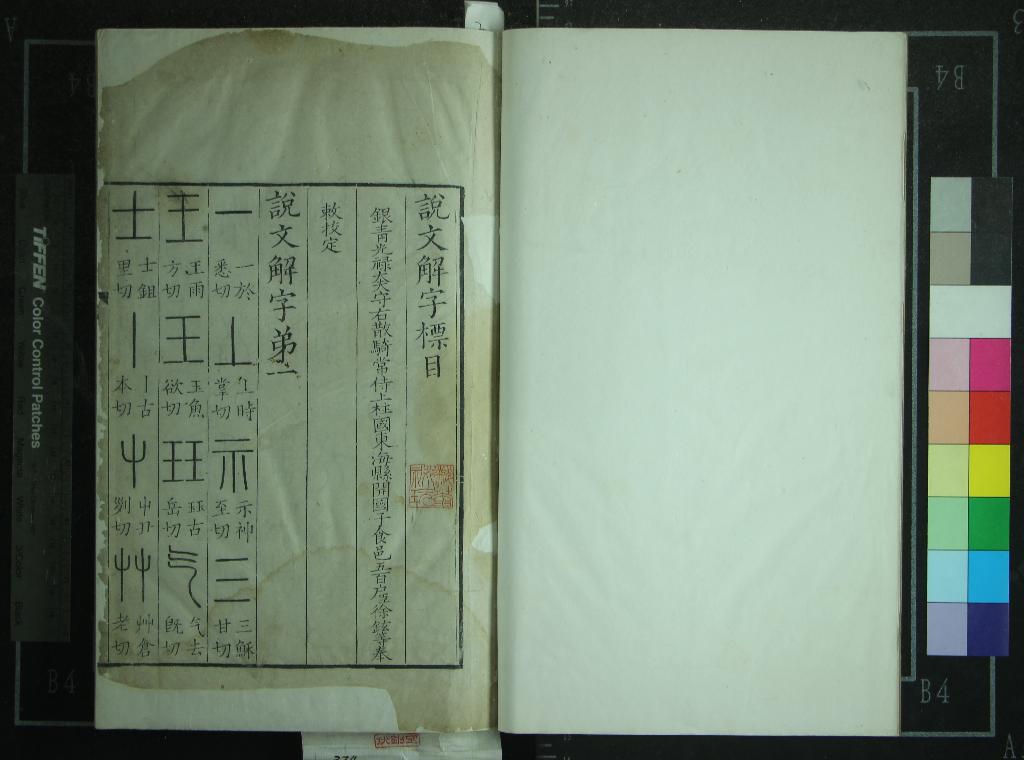 說文解字標目
銀青光祿大夫守右散騎常侍上柱國東海縣開國子食邑五百戶臣徐鉉等奉
敕挍定
說文解字弟一
一 一於悉切 丄 丄時掌切 示 示神至切 三 三穌甘切
王 王雨方切 王 玉魚欲切 玨 玨古岳切 气 气去旣切
士 士鉏里切 丨 丨古本切 屮 屮丑列切 艸 艸倉老切
TIFFEN Color Control Patches
B4
B4
B4
B4